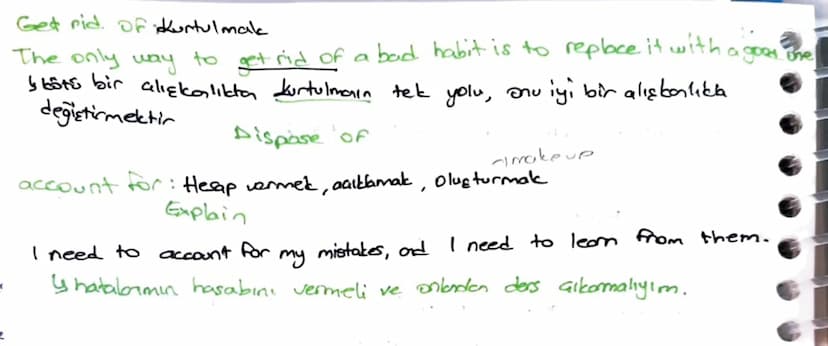 Get rid of : Kurtulmak
The only way to get rid of a bad habit is to replace it with a good one
↳ kötü bir alışkanlıktan kurtulmanın tek yolu, onu iyi bir alışkanlıkla
değiştirmektir
Dispose of
→ make up
account for : Hesap vermek, açıklamak, oluşturmak
Explain
I need to account for my mistakes, and I need to learn from them.
↳ hatalarımın hasabını vermeli ve onlardan ders çıkarmalıyım.